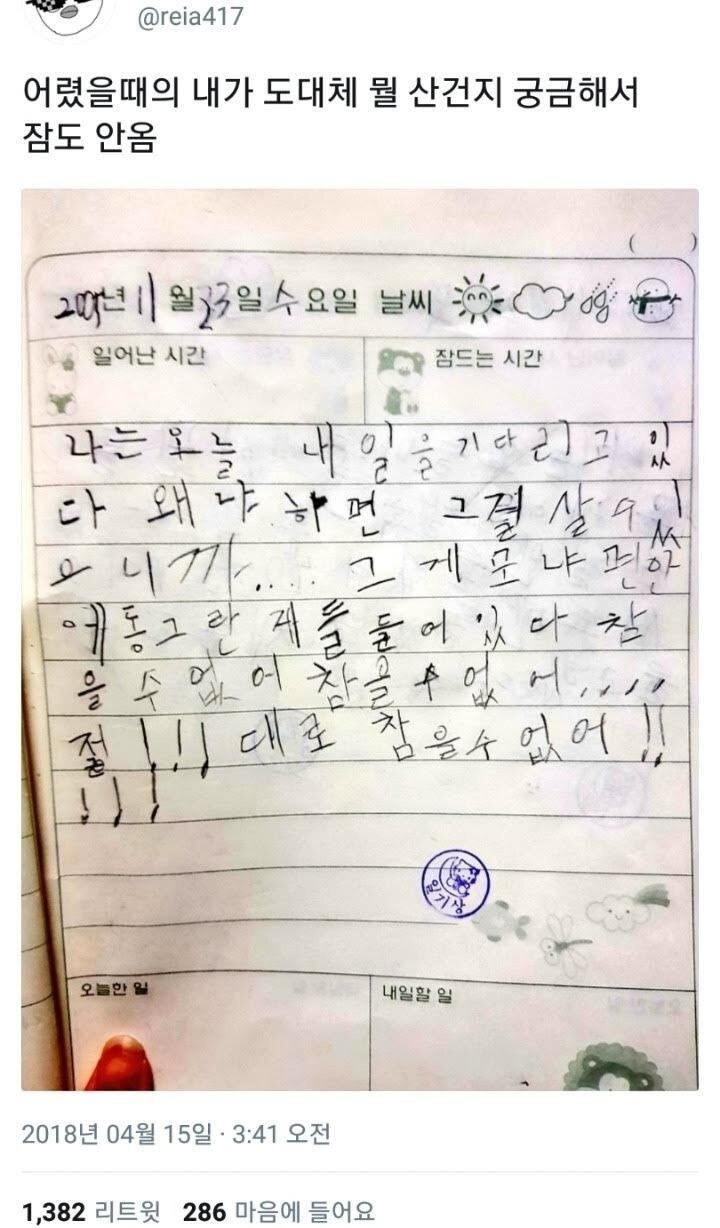 @reia417
어렸을때의 내가 도대체 뭘 산건지 궁금해서
잠도 안옴
( )
2005년 11월 23일 수요일 날씨
일어난 시간 잠드는 시간
나는 오늘 내일을 기다리고 있
다 왜냐하면 그걸 살 수 있
으니까.... 그게 모냐면안
에 동그란 재들 들어 있다 참
을 수 없어 참을 수 없어,,,,
절!!! 대로 참을수 없어!!
!!!
일기상
오늘한 일 내일할 일
2018년 04월 15일 · 3:41 오전
1,382 리트윗 286 마음에 들어요